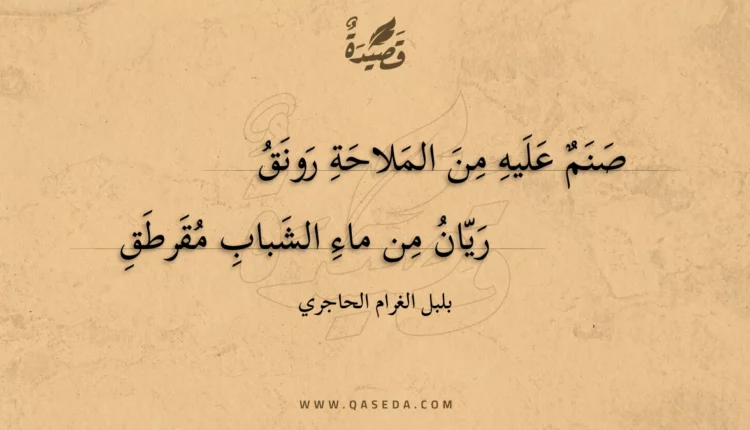 قَصِيْدَةٌ
صَنَمٌ عَلَيهِ مِنَ المَلاحَةِ رَونَقُ
رَيّانُ مِن ماءِ الشَبابِ مُقَرطَقِ
بلبل الغرام الحاجري
WWW.QASEDA.COM